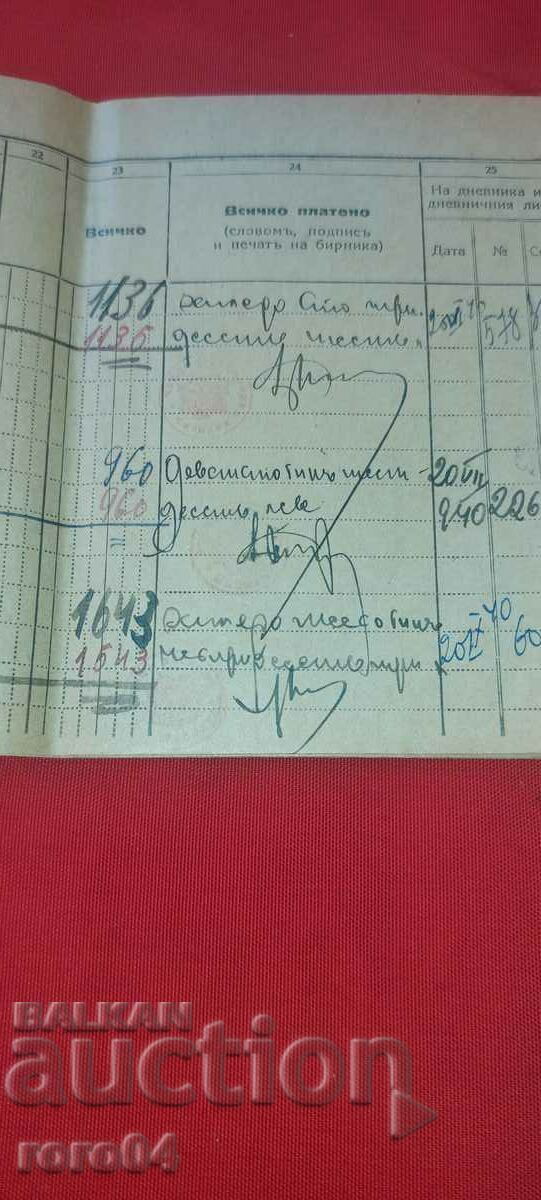 22 23 24 25
Всичко
Всичко платено
(словомъ, подпись
и печать на бирника)
На дневника и
дневничния ли
Дата № С
1136 хиляда сто три
1136 десеть шесть 578
960 Деветстотинъ шест 20 VIII
960 десеть лева 940 226
1643 хиляда шестотинъ -40
1643 четиридесеть три 60
BALKAN
auction
roro04